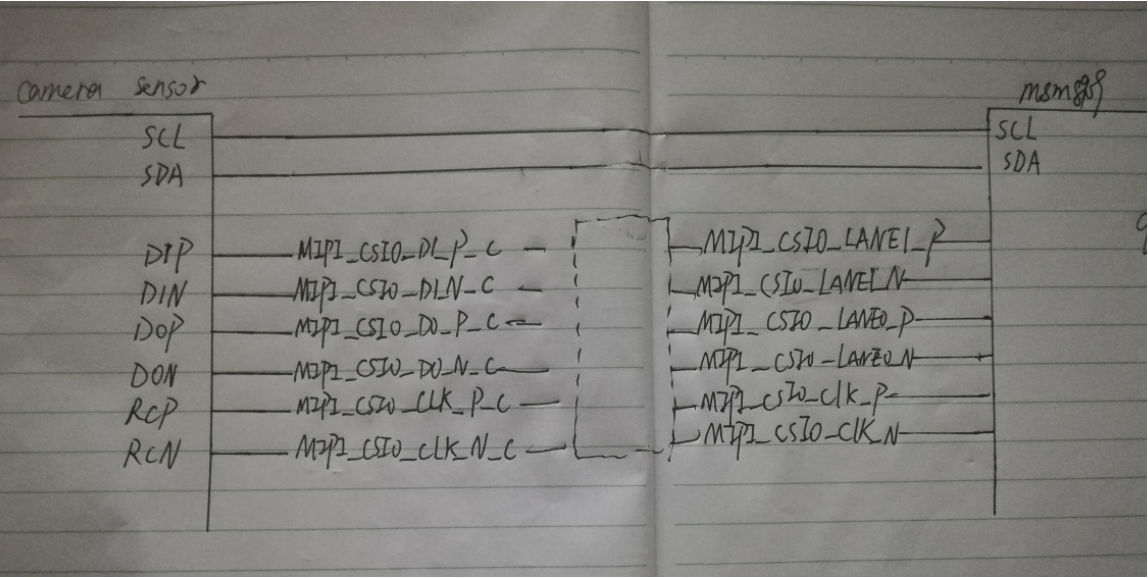 camera sensor
SCL SCL
SDA SDA
D1P MIPI_CSI0_D1_P_C MIPI_CSI0_LANE1_P
D1N MIPI_CSI0_D1_N_C MIPI_CSI0_LANE1_N
D0P MIPI_CSI0_D0_P_C MIPI_CSI0_LANE0_P
D0N MIPI_CSI0_D0_N_C MIPI_CSI0_LANE0_N
RCP MIPI_CSI0_CLK_P_C MIPI_CSI0_clk_P
RCN MIPI_CSI0_CLK_N_C MIPI_CSI0_CLK_N